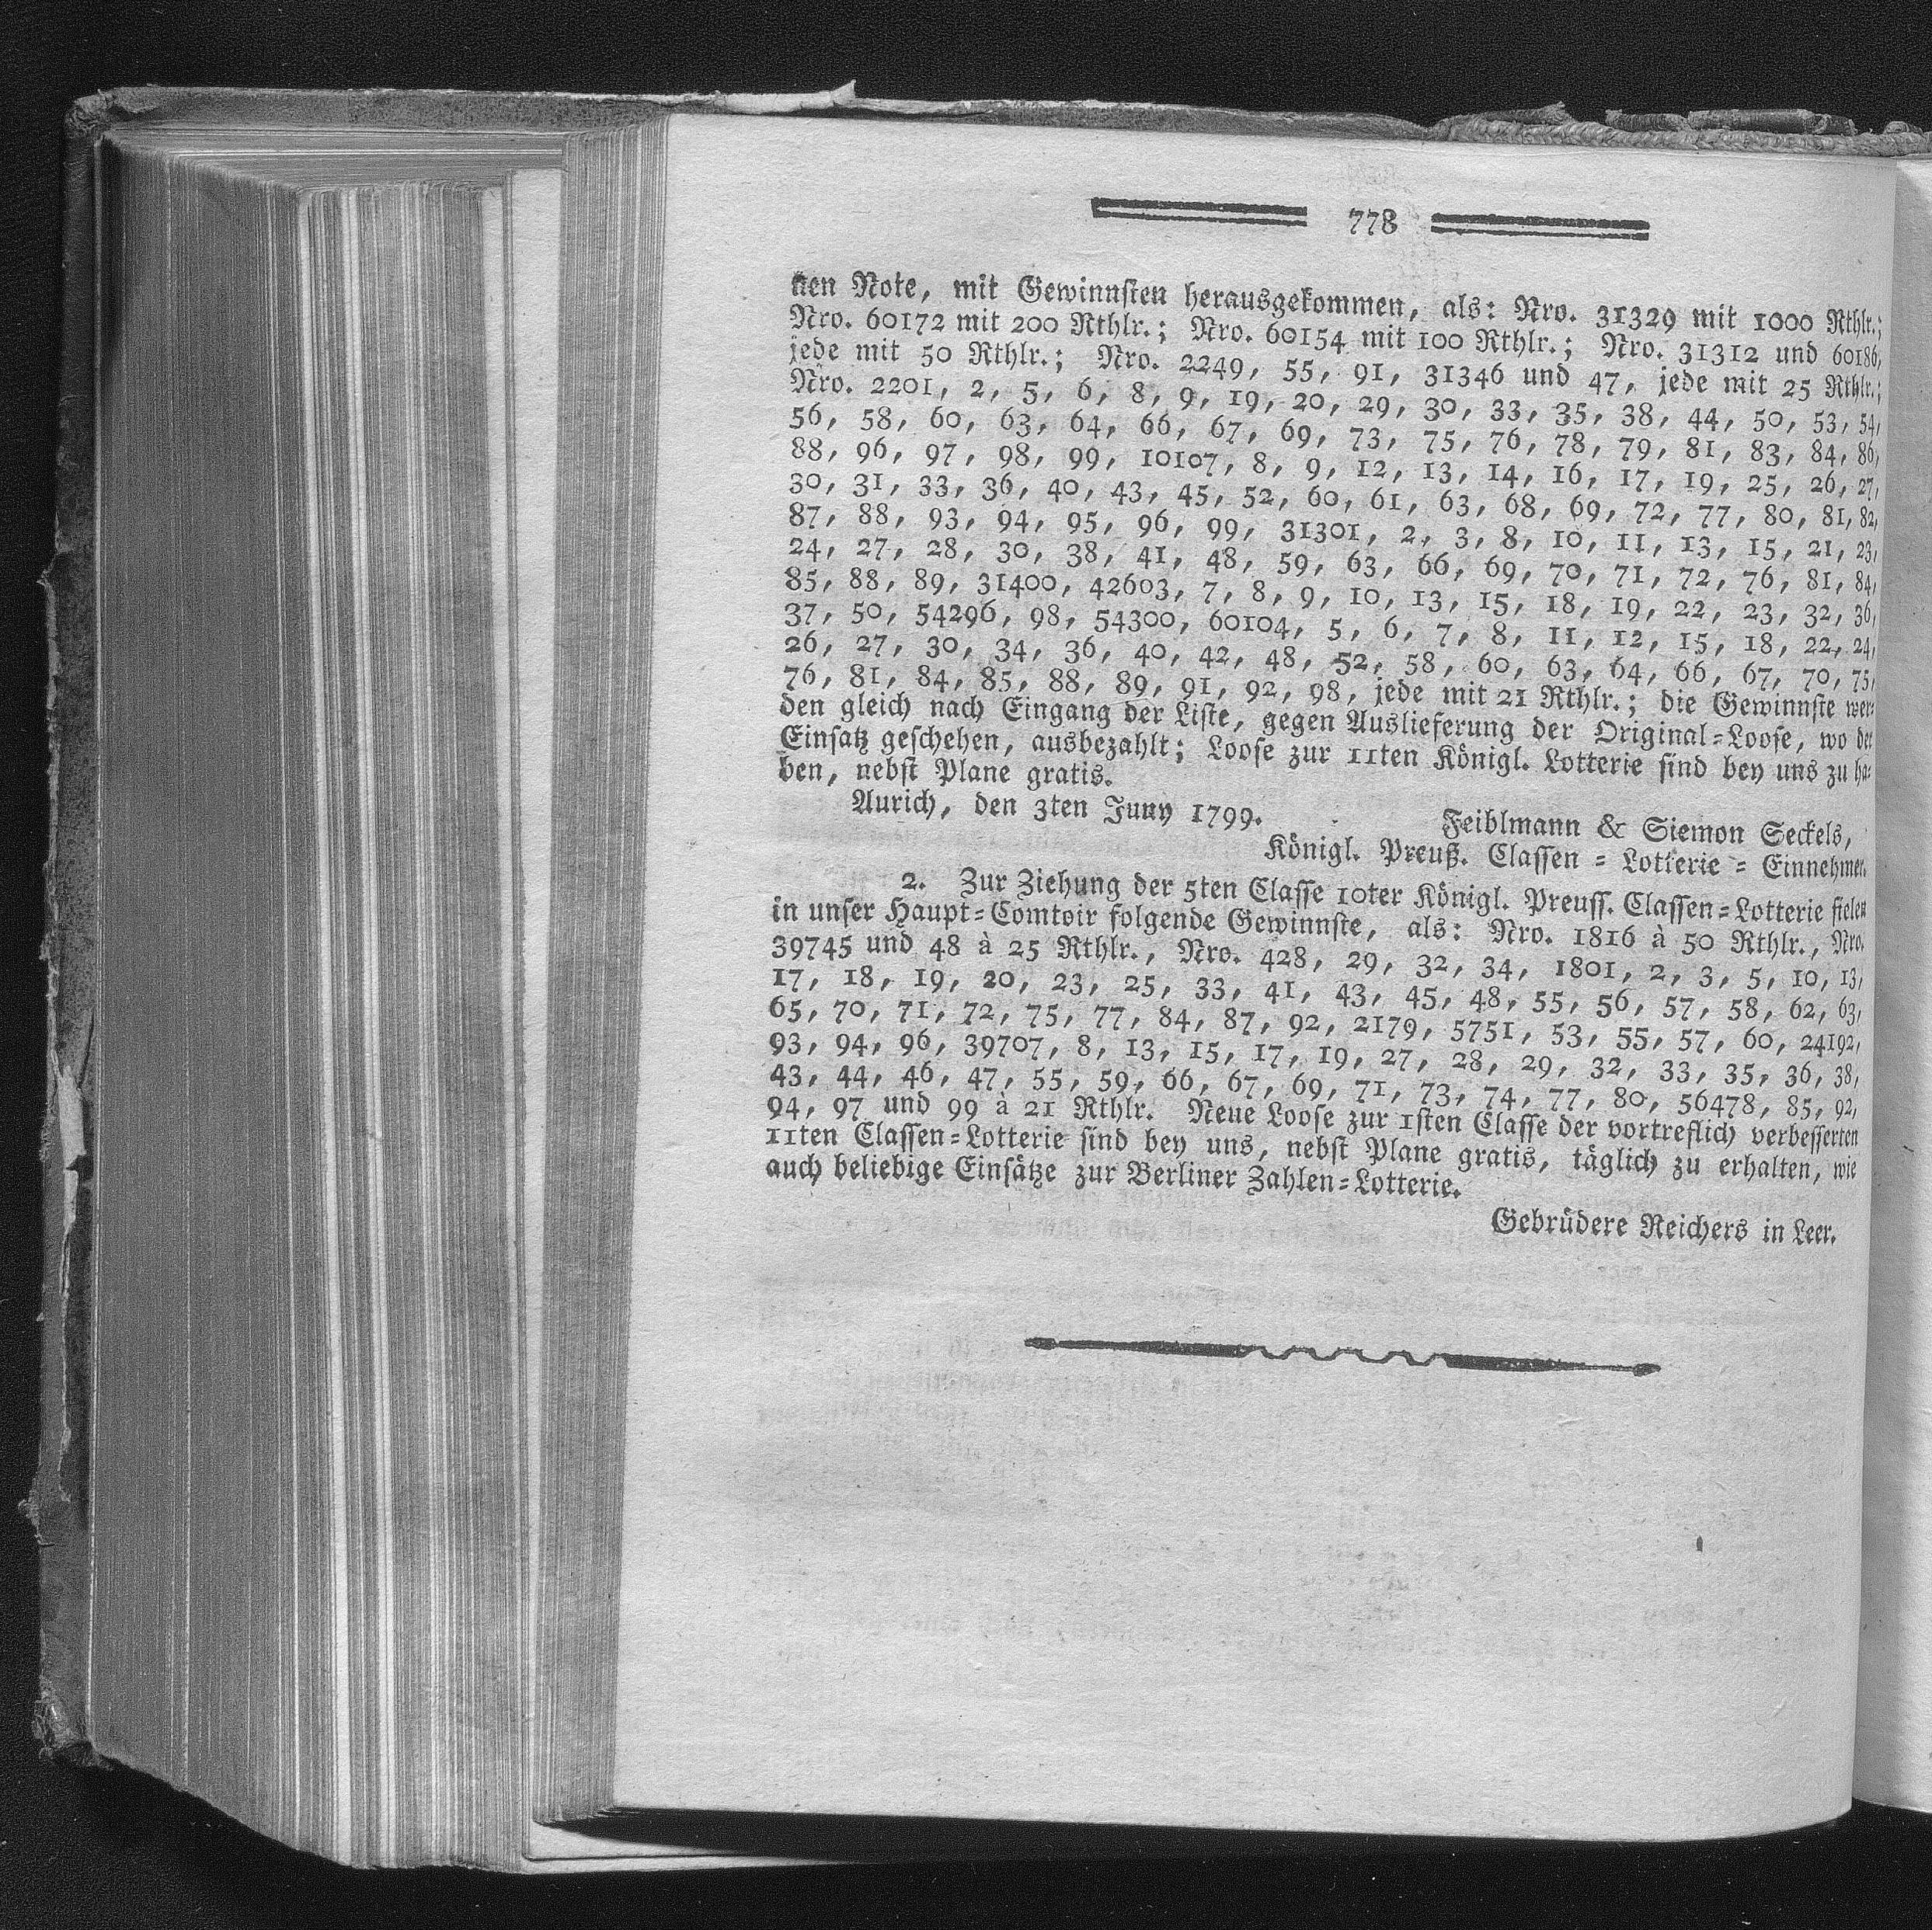 778
nen Note, mit Gewinnsten herausgekommen, als: Nro. 31329 mit 1000 Rthlr.;
Nro. 60172 mit 200 Rthlr.; Nro. 60154 mit 100 Rthlr.; Nro. 31312 und 60186,
jede mit 50 Rthlr.; Nro. 2249, 55, 91, 31346 und 47, jede mit 25 Rthlr.;
Nro. 2201, 2, 5, 6, 8, 9, 19, 20, 29, 30, 33, 35, 38, 44, 50, 53, 54,
56, 58, 60, 63, 64, 66, 67, 69, 73, 75, 76, 78, 79, 81, 83, 84, 86,
88, 96, 97, 98, 99, 10107, 8, 9, 12, 13, 14, 16, 17, 19, 25, 26, 27,
30, 31, 33, 36, 40, 43, 45, 52, 60, 61, 63, 68, 69, 72, 77, 80, 81, 82,
87, 88, 93, 94, 95, 96, 99, 31301, 2, 3, 8, 10, 11, 13, 15, 21, 23,
24, 27, 28, 30, 38, 41, 48, 59, 63, 66, 69, 70, 71, 72, 76, 81, 84,
85, 88, 89, 31400, 42603, 7, 8, 9, 10, 13, 15, 18, 19, 22, 23, 32, 36,
37, 50, 54296, 98, 54300, 60104, 5, 6, 7, 8, 11, 12, 15, 18, 22, 24,
26, 27, 30, 34, 36, 40, 42, 48, 52, 58, 60, 63, 64, 66, 67, 70, 75,
76, 81, 84, 85, 88, 89, 91, 92, 98, jede mit 21 Rthlr.; die Gewinnste wer=
den gleich nach Eingang der Liste, gegen Auslieferung der Original=Loose, wo der
Einsatz geschehen, ausbezahlt; Loose zur 11ten Königl. Lotterie sind bey uns zu ha=
ben, nebst Plane gratis.
Aurich, den 3ten Juny 1799.
Feiblmann & Siemon Seckels,
Königl. Preuß. Classen = Lotterie = Einnehmer.
2. Zur Ziehung der 5ten Classe 10ter Königl. Preuss. Classen=Lotterie fielen
in unser Haupt=Comtoir folgende Gewinnste, als: Nro. 1816 à 50 Rthlr., Nro.
39745 und 48 à 25 Rthlr., Nro. 428, 29, 32, 34, 1801, 2, 3, 5, 10, 13,
17, 18, 19, 20, 23, 25, 33, 41, 43, 45, 48, 55, 56, 57, 58, 62, 63,
65, 70, 71, 72, 75, 77, 84, 87, 92, 2179, 5751, 53, 55, 57, 60, 24192,
93, 94, 96, 39707, 8, 13, 15, 17, 19, 27, 28, 29, 32, 33, 35, 36, 38,
43, 44, 46, 47, 55, 59, 66, 67, 69, 71, 73, 74, 77, 80, 56478, 85, 92,
94, 97 und 99 à 21 Rthlr. Neue Loose zur 1sten Classe der vortreflich verbesserten
11ten Classen=Lotterie sind bey uns, nebst Plane gratis, täglich zu erhalten, wie
auch beliebige Einsätze zur Berliner Zahlen=Lotterie.
Gebrüdere Reichers in Leer.